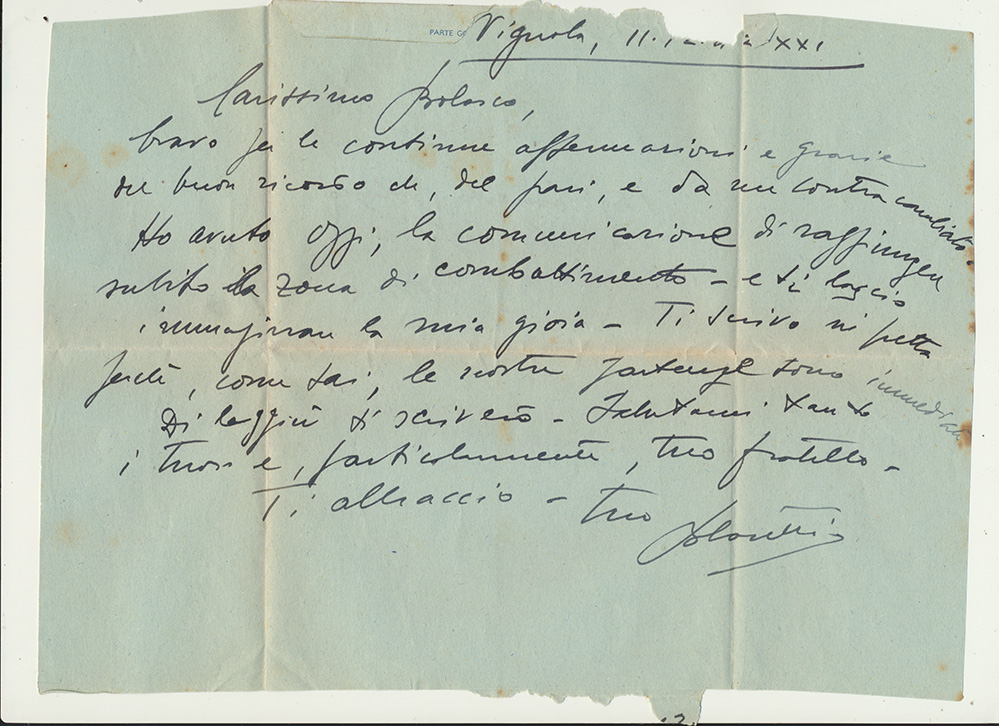 PARTE GO
Vignola, 11.12. XXI
Carissimo Bolasco,
bravo per le continue affermazioni e grazie
del buon ricordo che, del pari, è da me contraccambiato.
Ho avuto oggi, la comunicazione di raggiungere
subito la zona di combattimento - e ti lascio
immaginare la mia gioia - Ti scrivo in fretta
perché, come sai, le nostre partenze sono immediate
Di laggiù ti scriverò - Salutami tanto
i tuoi e, particolarmente, tuo fratello -
Ti abbraccio - tuo